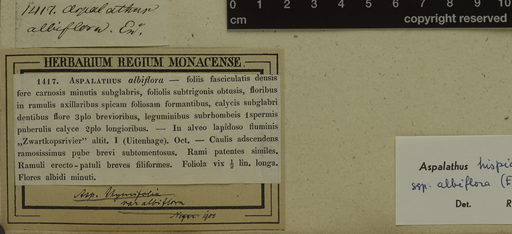 1417. Aspalathus
albiflora. E
0 1 2 3 4 5 6 7 8 9 10
cm copyright reserved
HERBARIUM REGIUM MONACENSE.
1417. ASPALATHUS albiflora — foliis fasciculatis densis
fere carnosis minutis subglabris, foliolis subtrigonis obtusis, floribus
in ramulis axillaribus spicam foliosam formantibus, calycis subglabri
dentibus flore 3plo brevioribus, leguminibus subrhombeis 1spermis
puberulis calyce 2plo longioribus. — In alveo lapidoso fluminis
„Zwartkopsrivier" altit. I (Uitenhage). Oct. — Caulis adscendens
ramosissimus pube brevi subtomentosus. Rami patentes similes.
Ramuli erecto-patuli breves filiformes. Foliola vix ½ lin. longa.
Flores albidi minuti.
Asp. thymifolia
var albiflora
Aspalathus hispi
ssp. albiflora (E
Det. R